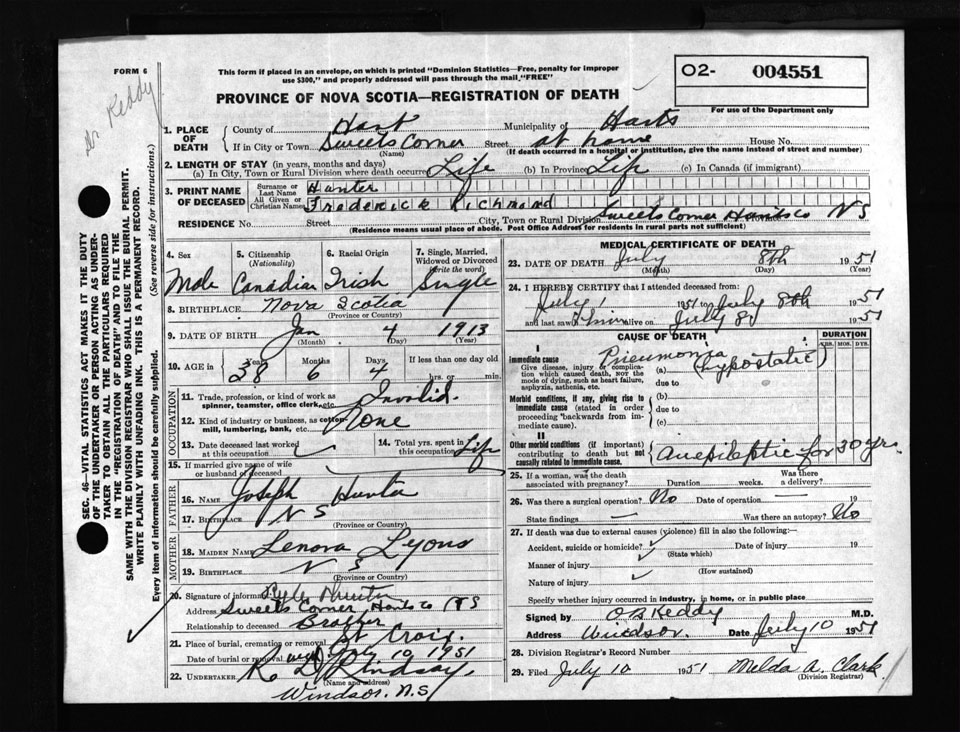 FORM 6
Dr Reddy
This form if placed in an envelope, on which is printed "Dominion Statistics—Free, penalty for improper
use $300," and properly addressed will pass through the mail "FREE"
PROVINCE OF NOVA SCOTIA—REGISTRATION OF DEATH
O2- 004551
For use of the Department only
1. PLACE OF DEATH
County of Hant Municipality of Hants
If in City or Town Sweets Corner Street at home House No.
(Name) (If death occurred in a hospital or institution, give the name instead of street and number)
2. LENGTH OF STAY (in years, months and days)
(a) In City, Town or Rural Division where death occurred Life (b) In Province Life (c) In Canada (if immigrant)
3. PRINT NAME OF DECEASED
Surname or Last Name Hunter
All Given or Christian Names Frederick Richmond
RESIDENCE No. Street City, Town or Rural Division Sweets Corner Hants Co N S
(Residence means usual place of abode. Post Office Address for residents in rural parts not sufficient)
4. Sex 5. Citizenship (Nationality) 6. Racial Origin 7. Single, Married, Widowed or Divorced (write the word)
Male Canadian Irish Single
8. BIRTHPLACE Nova Scotia
(Province or Country)
9. DATE OF BIRTH Jan 4 1913
(Month) (Day) (Year)
10. AGE in Years Months Days If less than one day old
38 6 4 hrs. or min.
OCCUPATION
11. Trade, profession, or kind of work as spinner, teamster, office clerk, etc. Invalid.
12. Kind of industry or business, as cotton-mill, lumbering, bank, etc. None
13. Date deceased last worked at this occupation
14. Total yrs. spent in this occupation Life
15. If married give name of wife or husband of deceased
FATHER
16. NAME Joseph Hunter
17. BIRTHPLACE N S
(Province or Country)
MOTHER
18. MAIDEN NAME Lenora Lyons
19. BIRTHPLACE N S
(Province or Country)
20. Signature of informant Hunter
Address Sweets Corner Hants co N S
Relationship to deceased Brother
21. Place of burial, cremation or removal St Croix.
Date of burial or removal July 10, 1951
22. UNDERTAKER Lindsay,
(Name and address)
Windsor. N.S
MEDICAL CERTIFICATE OF DEATH
23. DATE OF DEATH July 8th 1951
(Month) (Day) (Year)
24. I HEREBY CERTIFY that I attended deceased from:
July 1 1951 to July 8th 1951
and last saw him alive on July 8th 1951
CAUSE OF DEATH DURATION
YRS. MOS. DYS.
I
Immediate cause
Give disease, injury or complication which caused death, NOT the mode of dying, such as heart failure, asphyxia, asthenia, etc.
(a) Pneumonia (hypostatic)
due to
Morbid conditions, if any, giving rise to immediate cause (stated in order proceeding backwards from immediate cause).
(b)
due to
(c)
II
Other morbid conditions (if important) contributing to death but not causally related to immediate cause.
An epileptic for 30 yrs
25. If a woman, was the death associated with pregnancy? Duration weeks. Was there a delivery?
26. Was there a surgical operation? No Date of operation 19
State findings Was there an autopsy? No
27. If death was due to external causes (violence) fill in also the following:—
Accident, suicide or homicide? Date of injury 19
(State which)
Manner of injury
(How sustained)
Nature of injury
Specify whether injury occurred in industry, in home, or in public place
Signed by O B Keddy M.D.
Address Windsor. Date July 10 1951
28. Division Registrar's Record Number
29. Filed July 10 1951 Melda A. Clark
(Division Registrar)
SEC. 46—VITAL STATISTICS ACT MAKES IT THE DUTY
OF THE UNDERTAKER OR PERSON ACTING AS UNDER-
TAKER TO OBTAIN ALL THE PARTICULARS REQUIRED
IN THE "REGISTRATION OF DEATH" AND TO FILE THE
SAME WITH THE DIVISION REGISTRAR WHO SHALL ISSUE THE BURIAL PERMIT.
WRITE PLAINLY WITH UNFADING INK. THIS IS A PERMANENT RECORD.
Every item of information should be carefully supplied. (See reverse side for instructions.)